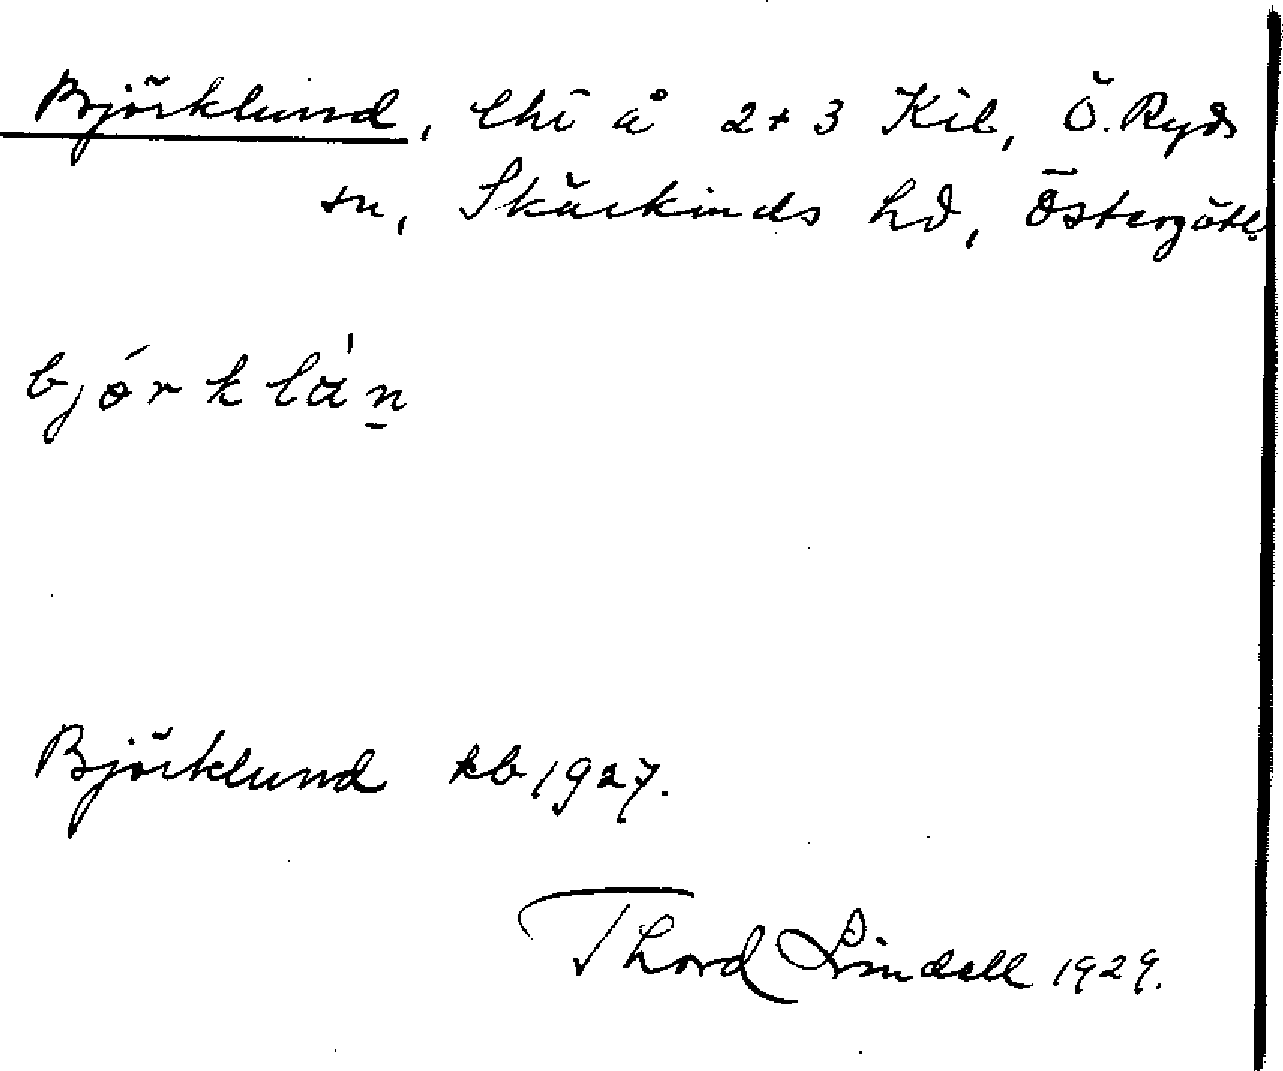 Björklund, lht å 2+3 Kil, Ö. Ryds
sn, Skärkinds hd, Östergötl.
bjórklán
Björklund kb 1927.
Thord Lindell 1929.